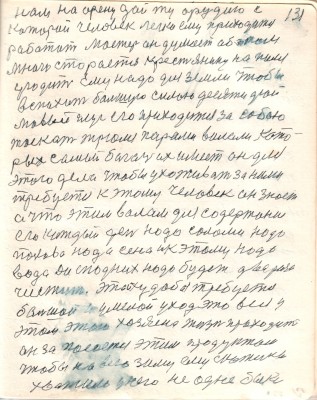 131
нам на орену дай ту орудию с
которай человек легко ему приходити
работат мастер он думает об
много старается крестьянину на ниви
угодит ему надо для земли чтобы
вспахит балшую силою десети дней
его приходится за собою
таскат трома парами валами кото
рых самый багач их имеет он для
этого дела чтобы ухаживат за ними
требуется к этому человек он знает
а что этим валам для содержани
его каждый ден надо соломи надо
полова нада сена и к этому надо
вода из под них надо будет два раза
чистит. Этому добы требуется
балшой умелой уход это все у
этом хозяена приходит
он за этим продуктам
чтобы на всю зиму ему
хватило у него не одне бики